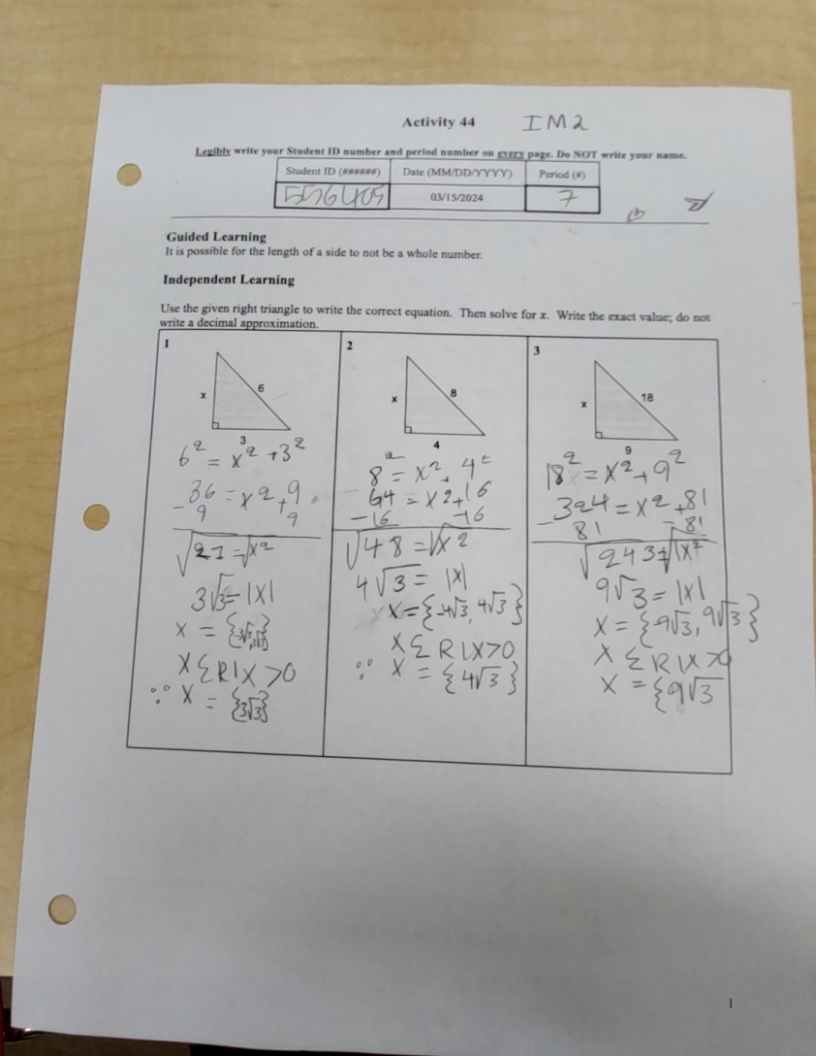 Activity 44 IM2
Legibly write your Student ID number and period number on every page. Do NOT write your name.
Student ID (######) Date (MM/DD/YYYY) Period (#)
556409 03/15/2024 7
Guided Learning
It is possible for the length of a side to not be a whole number.
Independent Learning
Use the given right triangle to write the correct equation. Then solve for x. Write the exact value; do not
write a decimal approximation.
1
x 6
3
6² = x² + 3²
36 = x² + 9
- 9 9
√27 = √x²
3√3 = |x|
x =
x Σ R | x > 0
∵ x = {3√3}
2
x 8
4
8² = x² + 4²
64 = x² + 16
-16 -16
√48 = √x²
4√3 = |x|
x = {-4√3, 4√3}
x Σ R | x > 0
∵ x = {4√3}
3
x 18
9
18² = x² + 9²
324 = x² + 81
- 81 - 81
√243 = √x²
9√3 = |x|
x = {-9√3, 9√3}
x Σ R | x > 0
x = {9√3
1